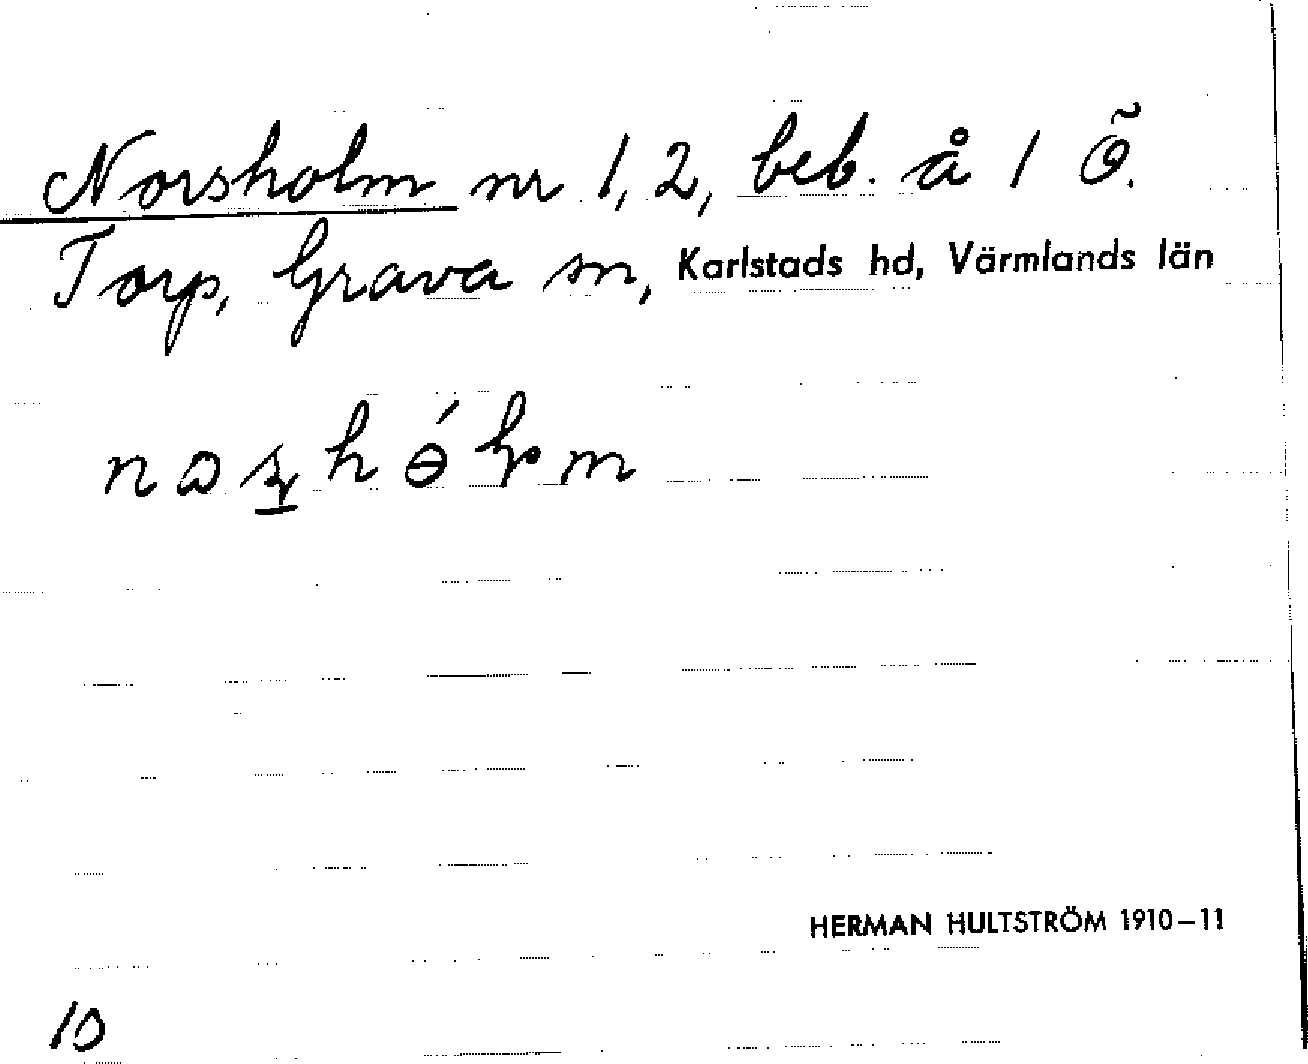 Norsholm nr 1, 2, beb. å 1 Ö.
Torp, Grava sn, Karlstads hd, Värmlands län
HERMAN HULTSTRÖM 1910–11
10